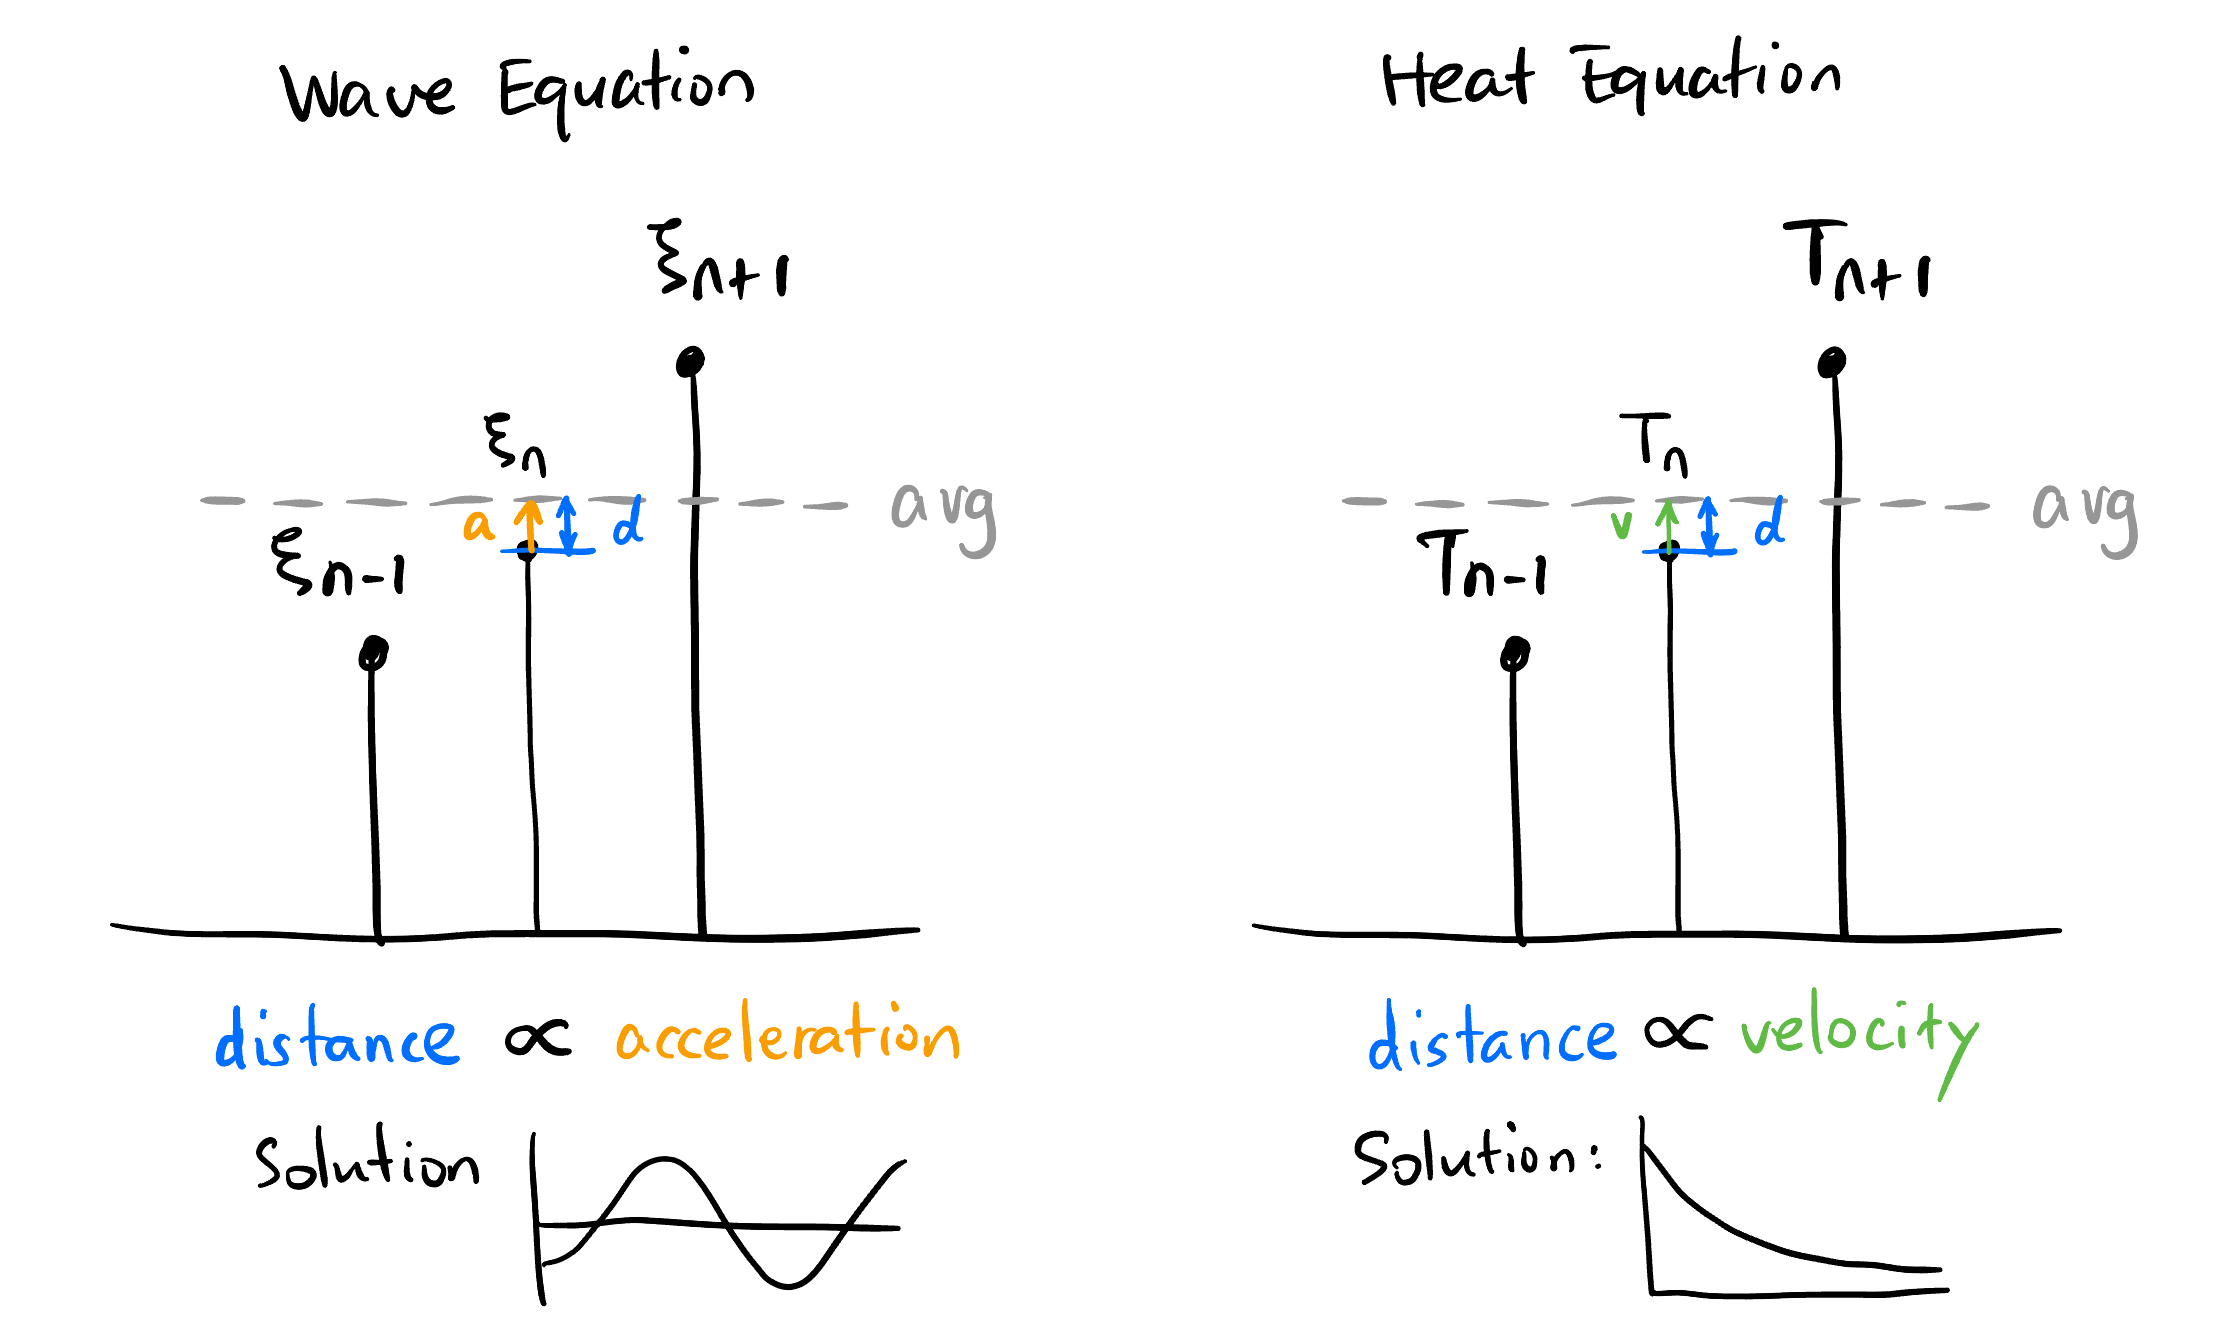 Wave Equation
ξn+1
ξn
avg
a
d
ξn-1
distance ∝ acceleration
Solution
Heat Equation
Tn+1
Tn
avg
v
d
Tn-1
distance ∝ velocity
Solution: